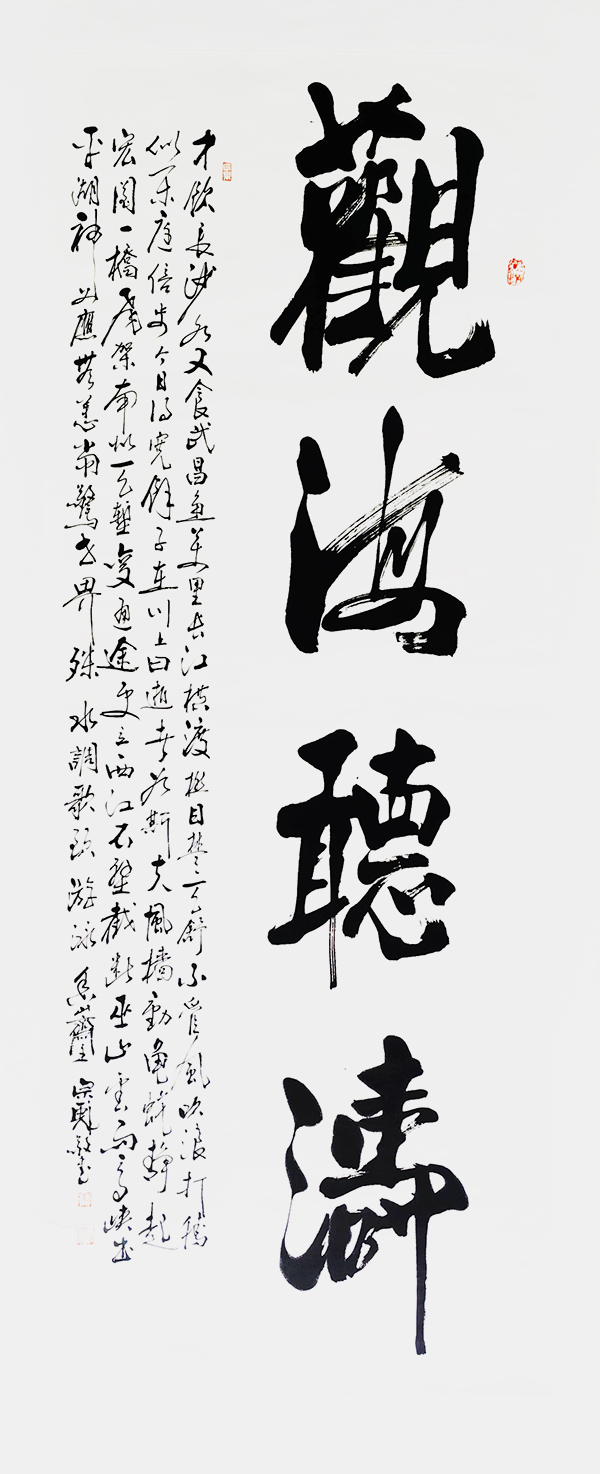 觀海聽濤
才飲長沙水又食武昌魚萬里長江橫渡極目楚天舒不管風吹浪打勝
似閑庭信步今日得寬餘子在川上曰逝者如斯夫風檣動龜蛇靜起
宏圖一橋飛架南北天塹變通途更立西江石壁截斷巫山雲雨高峽出
平湖神女應無恙當驚世界殊 水調歌頭 游泳